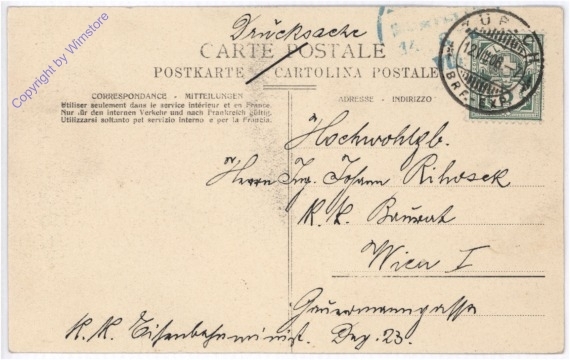 Drucksache
CARTE POSTALE
POSTKARTE CARTOLINA POSTALE
CORRESPONDANCE - MITTEILUNGEN
Utiliser seulement dans le service intérieur et en France.
Nur für den internen Verkehr und nach Frankreich gültig.
Utilizzarsi soltanto pel servizio interno e per la Francia.
ADRESSE - INDIRIZZO
ZÜRICH
BRF. EXP.
Hochwohlgb.
Herrn Ing. Johann Rihosek
K. K. Baurat
Wien I
Gauermanngasse
K. K. Eisenbahnminist. Dep. 23.
Copyright by Wimstore